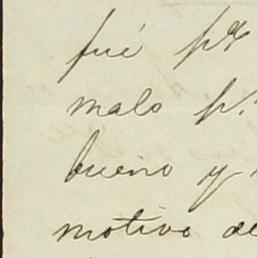 fué pª
malo p.
bueno y
motivo de